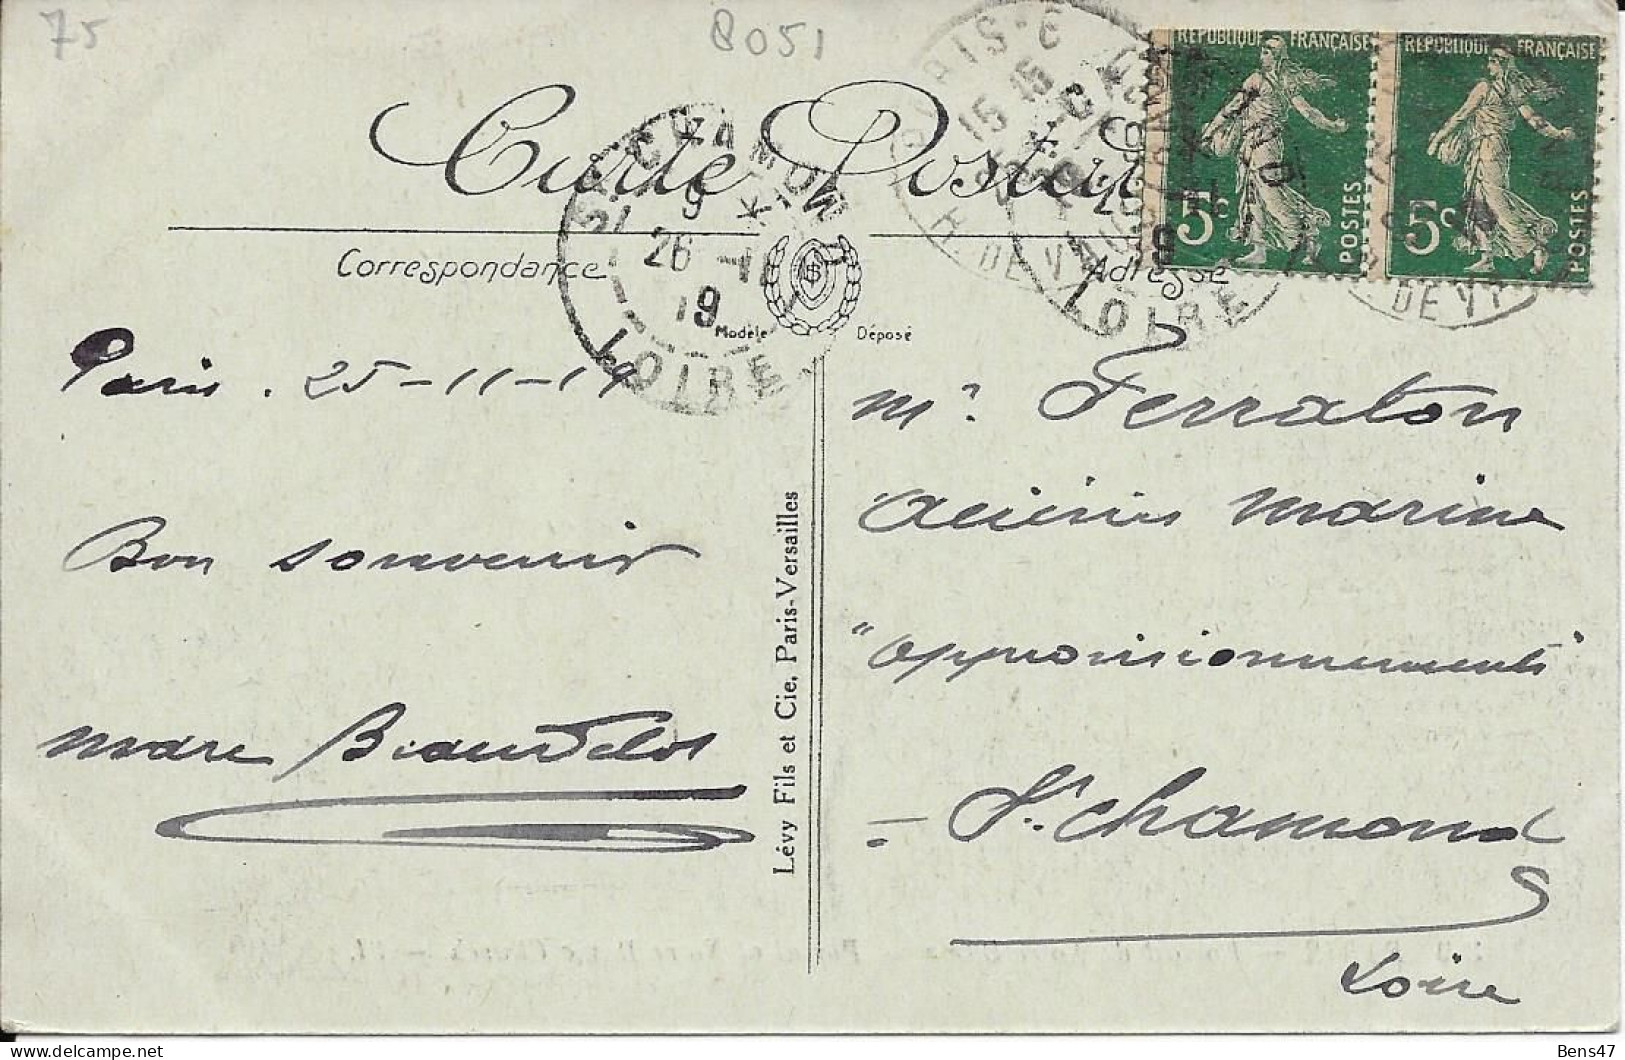 75
8051
RÉPUBLIQUE FRANÇAISE
RÉPUBLIQUE FRANÇAISE
5c POSTES
5c POSTES
Carte Postale
ST CHAMOND
9
26 -11
19
LOIRE
PARIS-6
15 15
R. DE VAUG
LOIRE
DE V
Correspondance
Adresse
Modèle Déposé
Paris . 25-11-19
Bon souvenir
Marc
Lévy Fils et Cie, Paris-Versailles
Mr. Ferraton
Aciéries Marine
"approvisionnements"
= St Chamond
Loire
Bens47